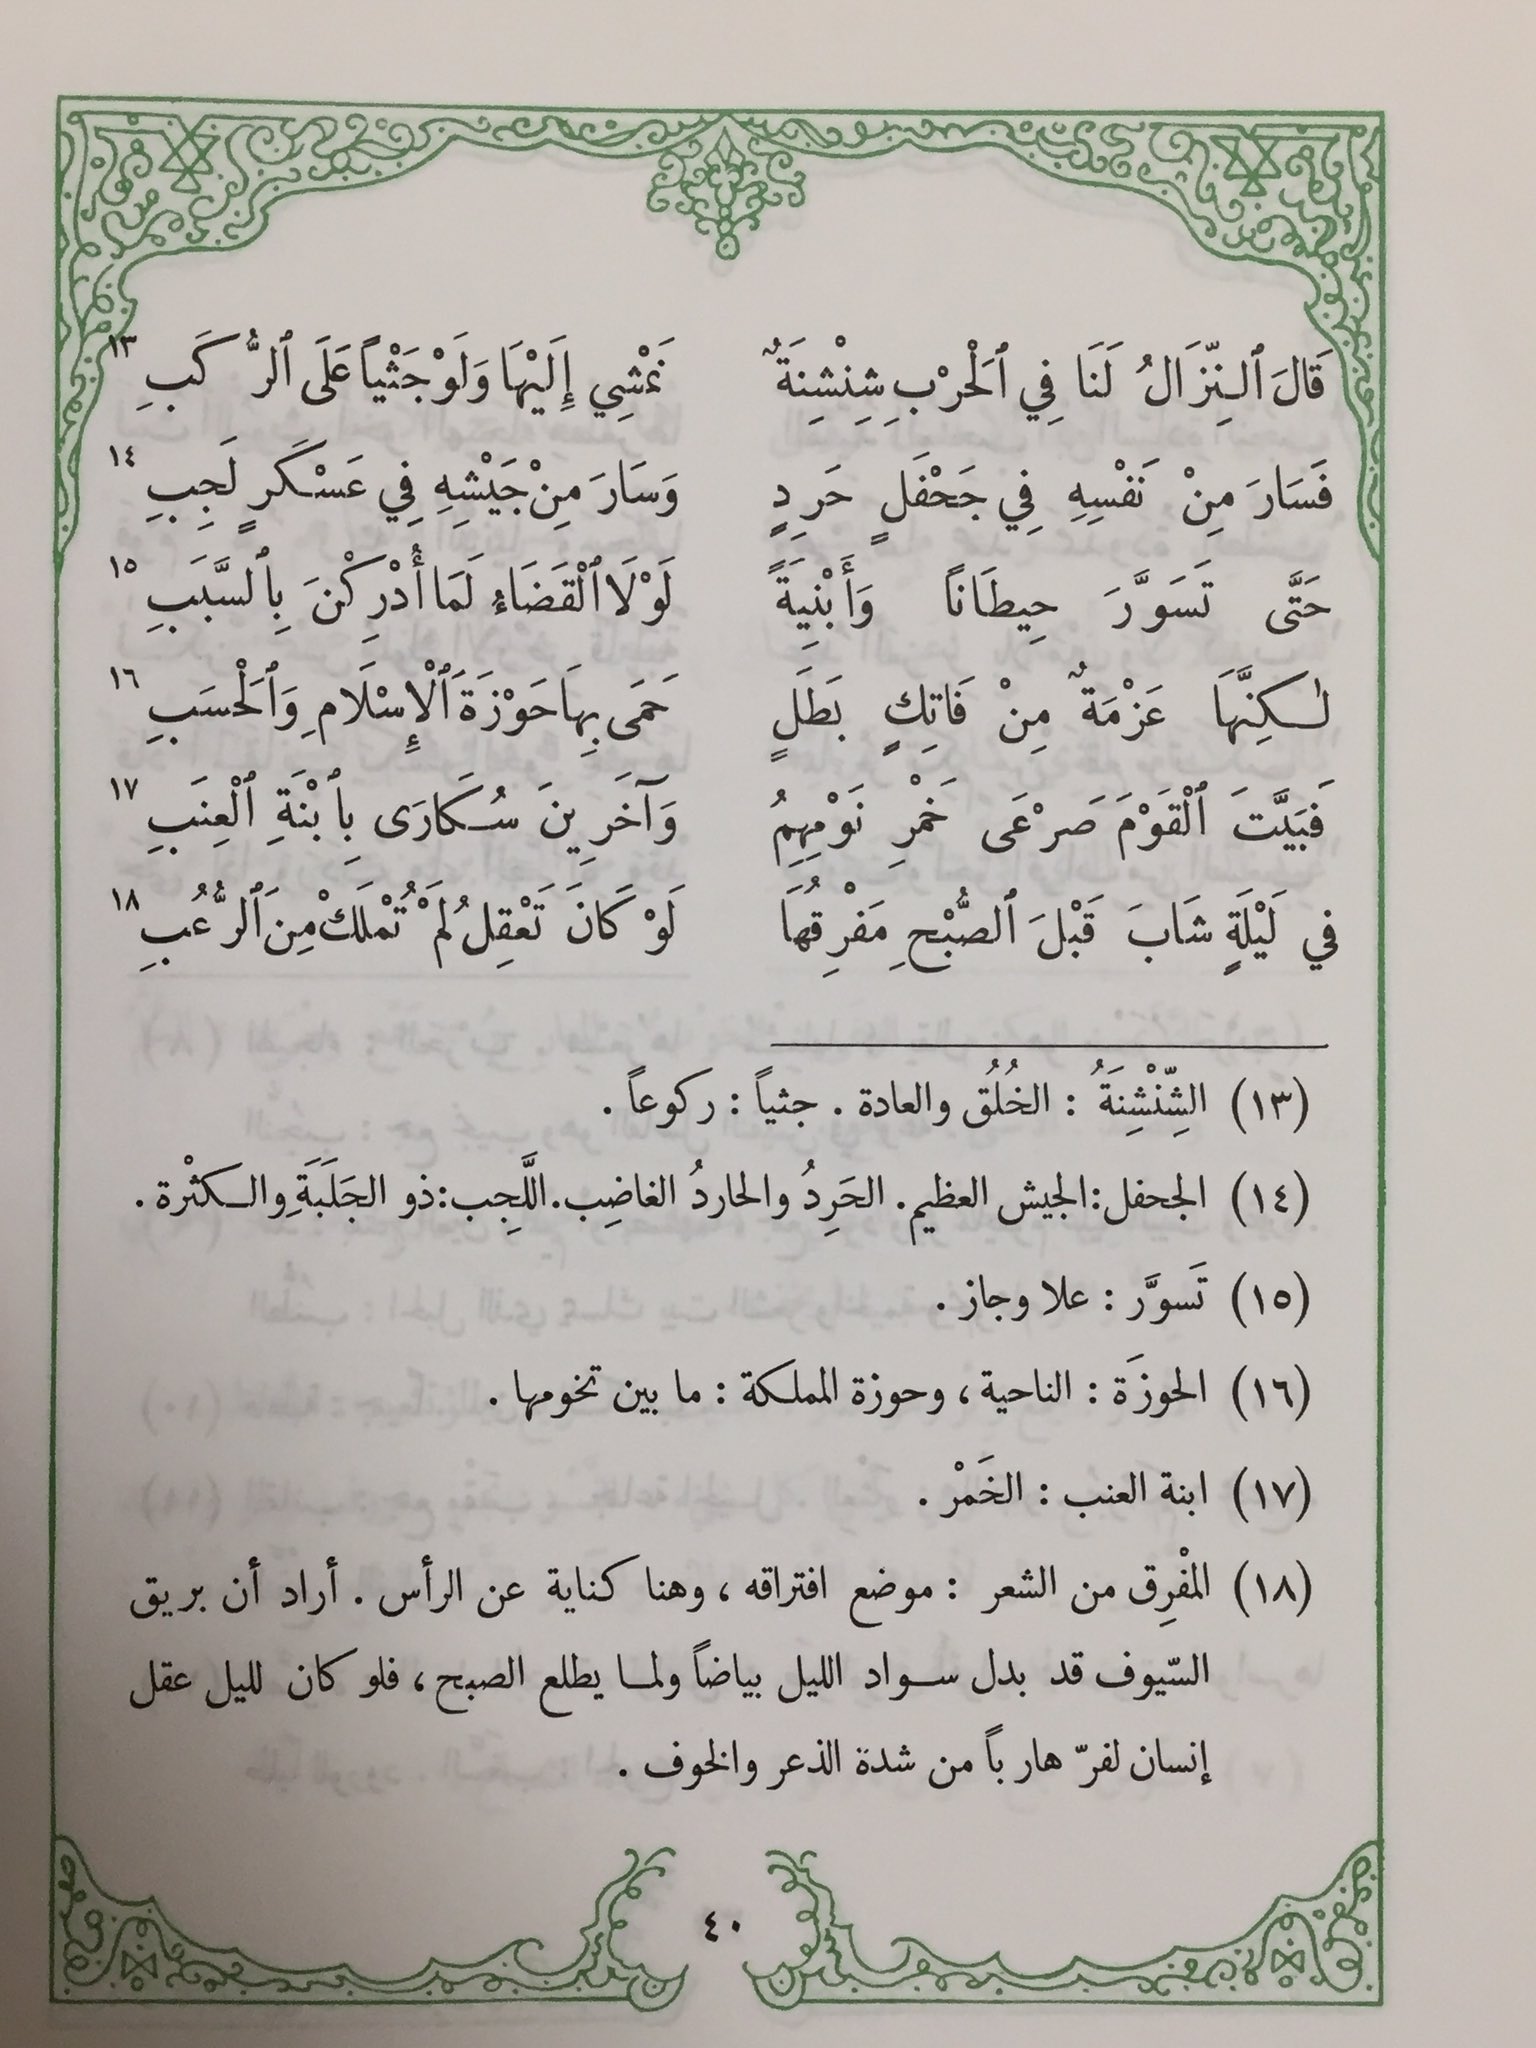 قَالَ ٱلنِّزَالُ لَنَا فِي ٱلْحَرْبِ شِنْشِنَةٌ نَمْشِي إِلَيْهَا وَلَوْ جَثْياً عَلَى ٱلرُّكَبِ ١٣
فَسَارَ مِنْ نَفْسِهِ فِي جَحْفَلٍ حَرِدٍ وَسَارَ مِنْ جَيْشِهِ فِي عَسْكَرٍ لَجِبِ ١٤
حَتَّى تَسَوَّرَ حِيطَاناً وَأَبْنِيَةً لَوْلَا ٱلْقَضَاءُ لَمَا أُدْرِكْنَ بِٱلسَّبَبِ ١٥
لٰكِنَّهَا عَزْمَةٌ مِنْ فَاتِكٍ بَطَلٍ حَمَى بِهَا حَوْزَةَ ٱلْإِسْلَامِ وَٱلْحَسَبِ ١٦
فَبَيَّتَ ٱلْقَوْمَ صَرْعَى خَمْرِ نَوْمِهِمُ وَآخَرِينَ سُكَارَى بِٱبْنَةِ ٱلْعِنَبِ ١٧
في لَيْلَةٍ شَابَ قَبْلَ ٱلصُّبْحِ مَفْرِقُهَا لَوْ كَانَ تَعْقِلُ لَمْ تُمْلَكْ مِنَ ٱلرُّعُبِ ١٨
(١٣) الشِّنْشِنَةُ : الخُلُق والعادة . جثياً : ركوعاً .
(١٤) الجحفل : الجيش العظيم . الحَرِدُ والحاردُ الغاضِب . اللَّجِب : ذو الجَلَبَةِ والكثْرة .
(١٥) تَسوَّر : علا وجاز .
(١٦) الحوزَة : الناحية ، وحوزة المملكة : ما بين تخومها .
(١٧) ابنة العنب : الخَمْر .
(١٨) المفْرِق من الشعر : موضع افتراقه ، وهنا كناية عن الرأس . أراد أن بريق
السّيوف قد بدل سواد الليل بياضاً ولما يطلع الصبح ، فلو كان لليل عقل
إنسان لفرّ هارباً من شدة الذعر والخوف .
٤٠